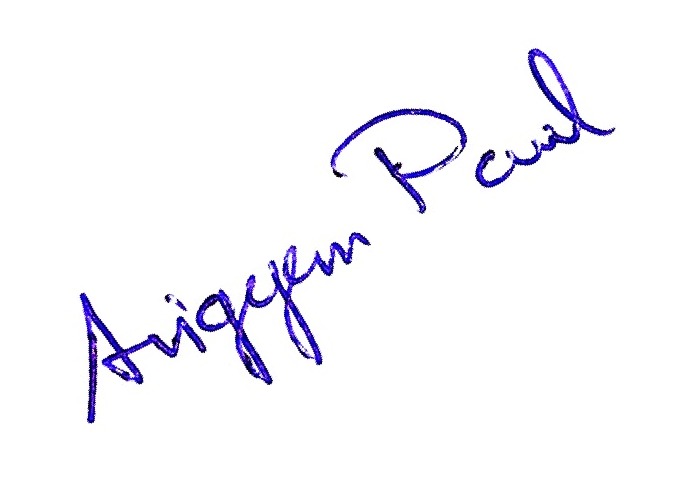 Avigyan Paul